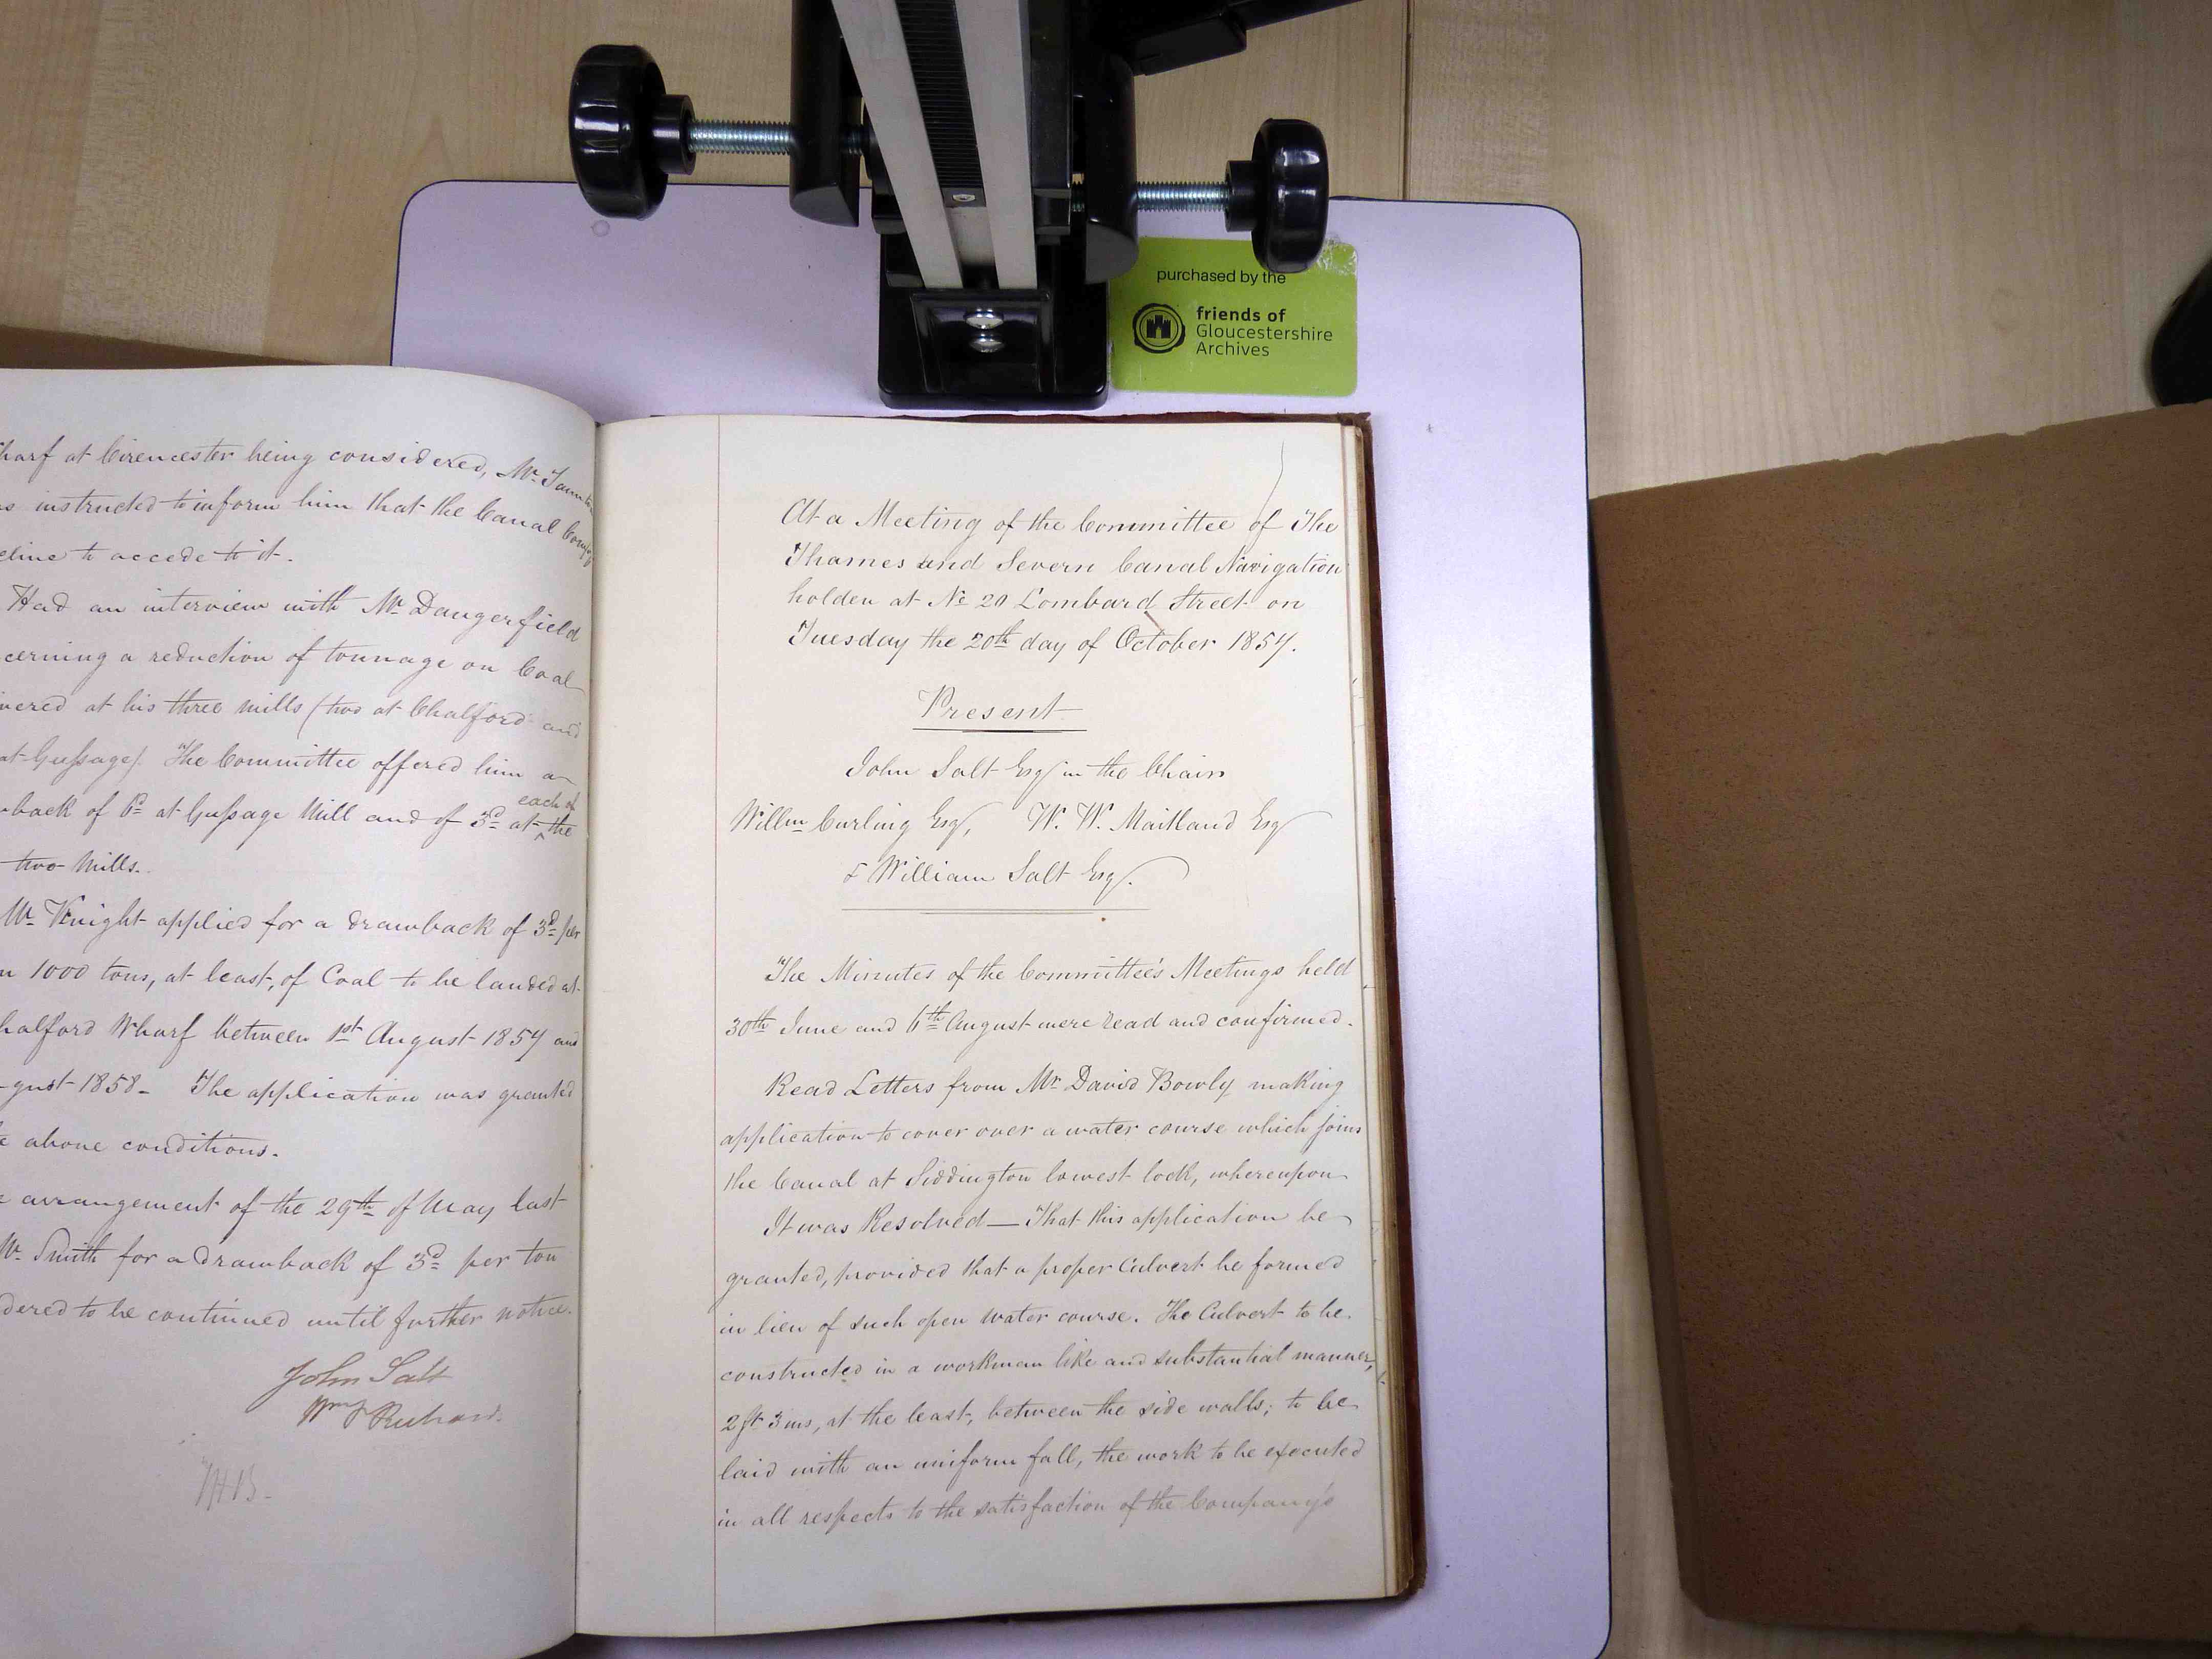 purchased by the
friends of
Gloucestershire
Archives
harf at Cirencester being considered, Mr.
s instructed to inform him that the Canal
cline to accede to it.
Had an interview with Mr. Dangerfield
cerning a reduction of tonnage on Coal
vered at his three mills (two at Chalford and
at Gussage). The Committee offered him a
back of 6d at Gussage Mill and of 3d at each of the
two Mills.
Mr. Knight applied for a drawback of 3d per
n 1000 tons, at least, of Coal to be landed at
halford Wharf between 1st August 1857 and
gust 1858 - The application was granted
e above conditions.
e arrangement of the 29th of May last
Mr. Smith for a drawback of 3d per ton
dered to be continued until further notice.
John Salt
At a Meeting of the Committee of The
Thames and Severn Canal Navigation
holden at No. 20 Lombard Street on
Tuesday the 20th day of October 1857.
Present
John Salt Esq in the Chair
Willm Curling Esq, W. W. Maitland Esq
& William Salt Esq.
The Minutes of the Committee's Meetings held
30th June and 6th August were read and confirmed.
Read Letters from Mr David Bowly, making
application to cover over a water course which joins
the Canal at Siddington lowest lock, whereupon
It was Resolved — That this application be
granted, provided that a proper Culvert be formed
in lieu of such open water course. The Culvert to be
constructed in a workman like and substantial manner,
2 ft 3 ins, at the least, between the side walls; to be
laid with an uniform fall, the work to be executed
in all respects to the satisfaction of the Company's